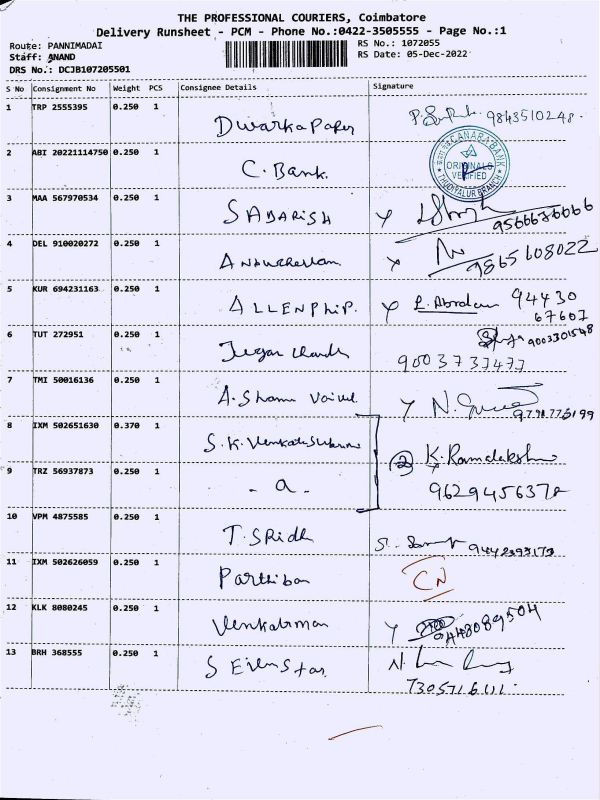 THE PROFESSIONAL COURIERS, Coimbatore
Delivery Runsheet - PCM - Phone No.:0422-3505555 - Page No.:1
Route: PANNIMADAI
Staff: ANAND
DRS No.: DCJB107205501
RS No.: 1072055
RS Date: 05-Dec-2022
S No Consignment No Weight PCS Consignee Details Signature
1 TRP 2555395 0.250 1 Dwarka Paper 9843510248.
2 ABI 20221114750 0.250 1 C. Bank. CANARA BANK ORIGINALS VERIFIED THUDIYALUR BRANCH
3 MAA 567970534 0.250 1 SABARISH 9566636666
4 DEL 910020272 0.250 1 9865108022
5 KUR 694231163 0.250 1 ALLEN Phip. 94430
67607
6 TUT 272951 0.250 1 9003301548
9003737477
7 TMI 50016136 0.250 1 A. Shanu
8 IXM 502651630 0.370 1 S.K. K.
9 TRZ 56937873 0.250 1 - a -
10 VPM 4875585 0.250 1 T. SRidh
11 IXM 502626059 0.250 1 Parthiban CN
12 KLK 8080245 0.250 1 9448089504
13 BRH 368555 0.250 1 N.